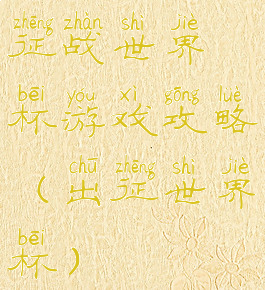 zhēng zhàn shì jiè
征战世界
bēi yóu xì gōng lüè
杯游戏攻略
chū zhēng shì jiè
（出征世界
bēi
杯）